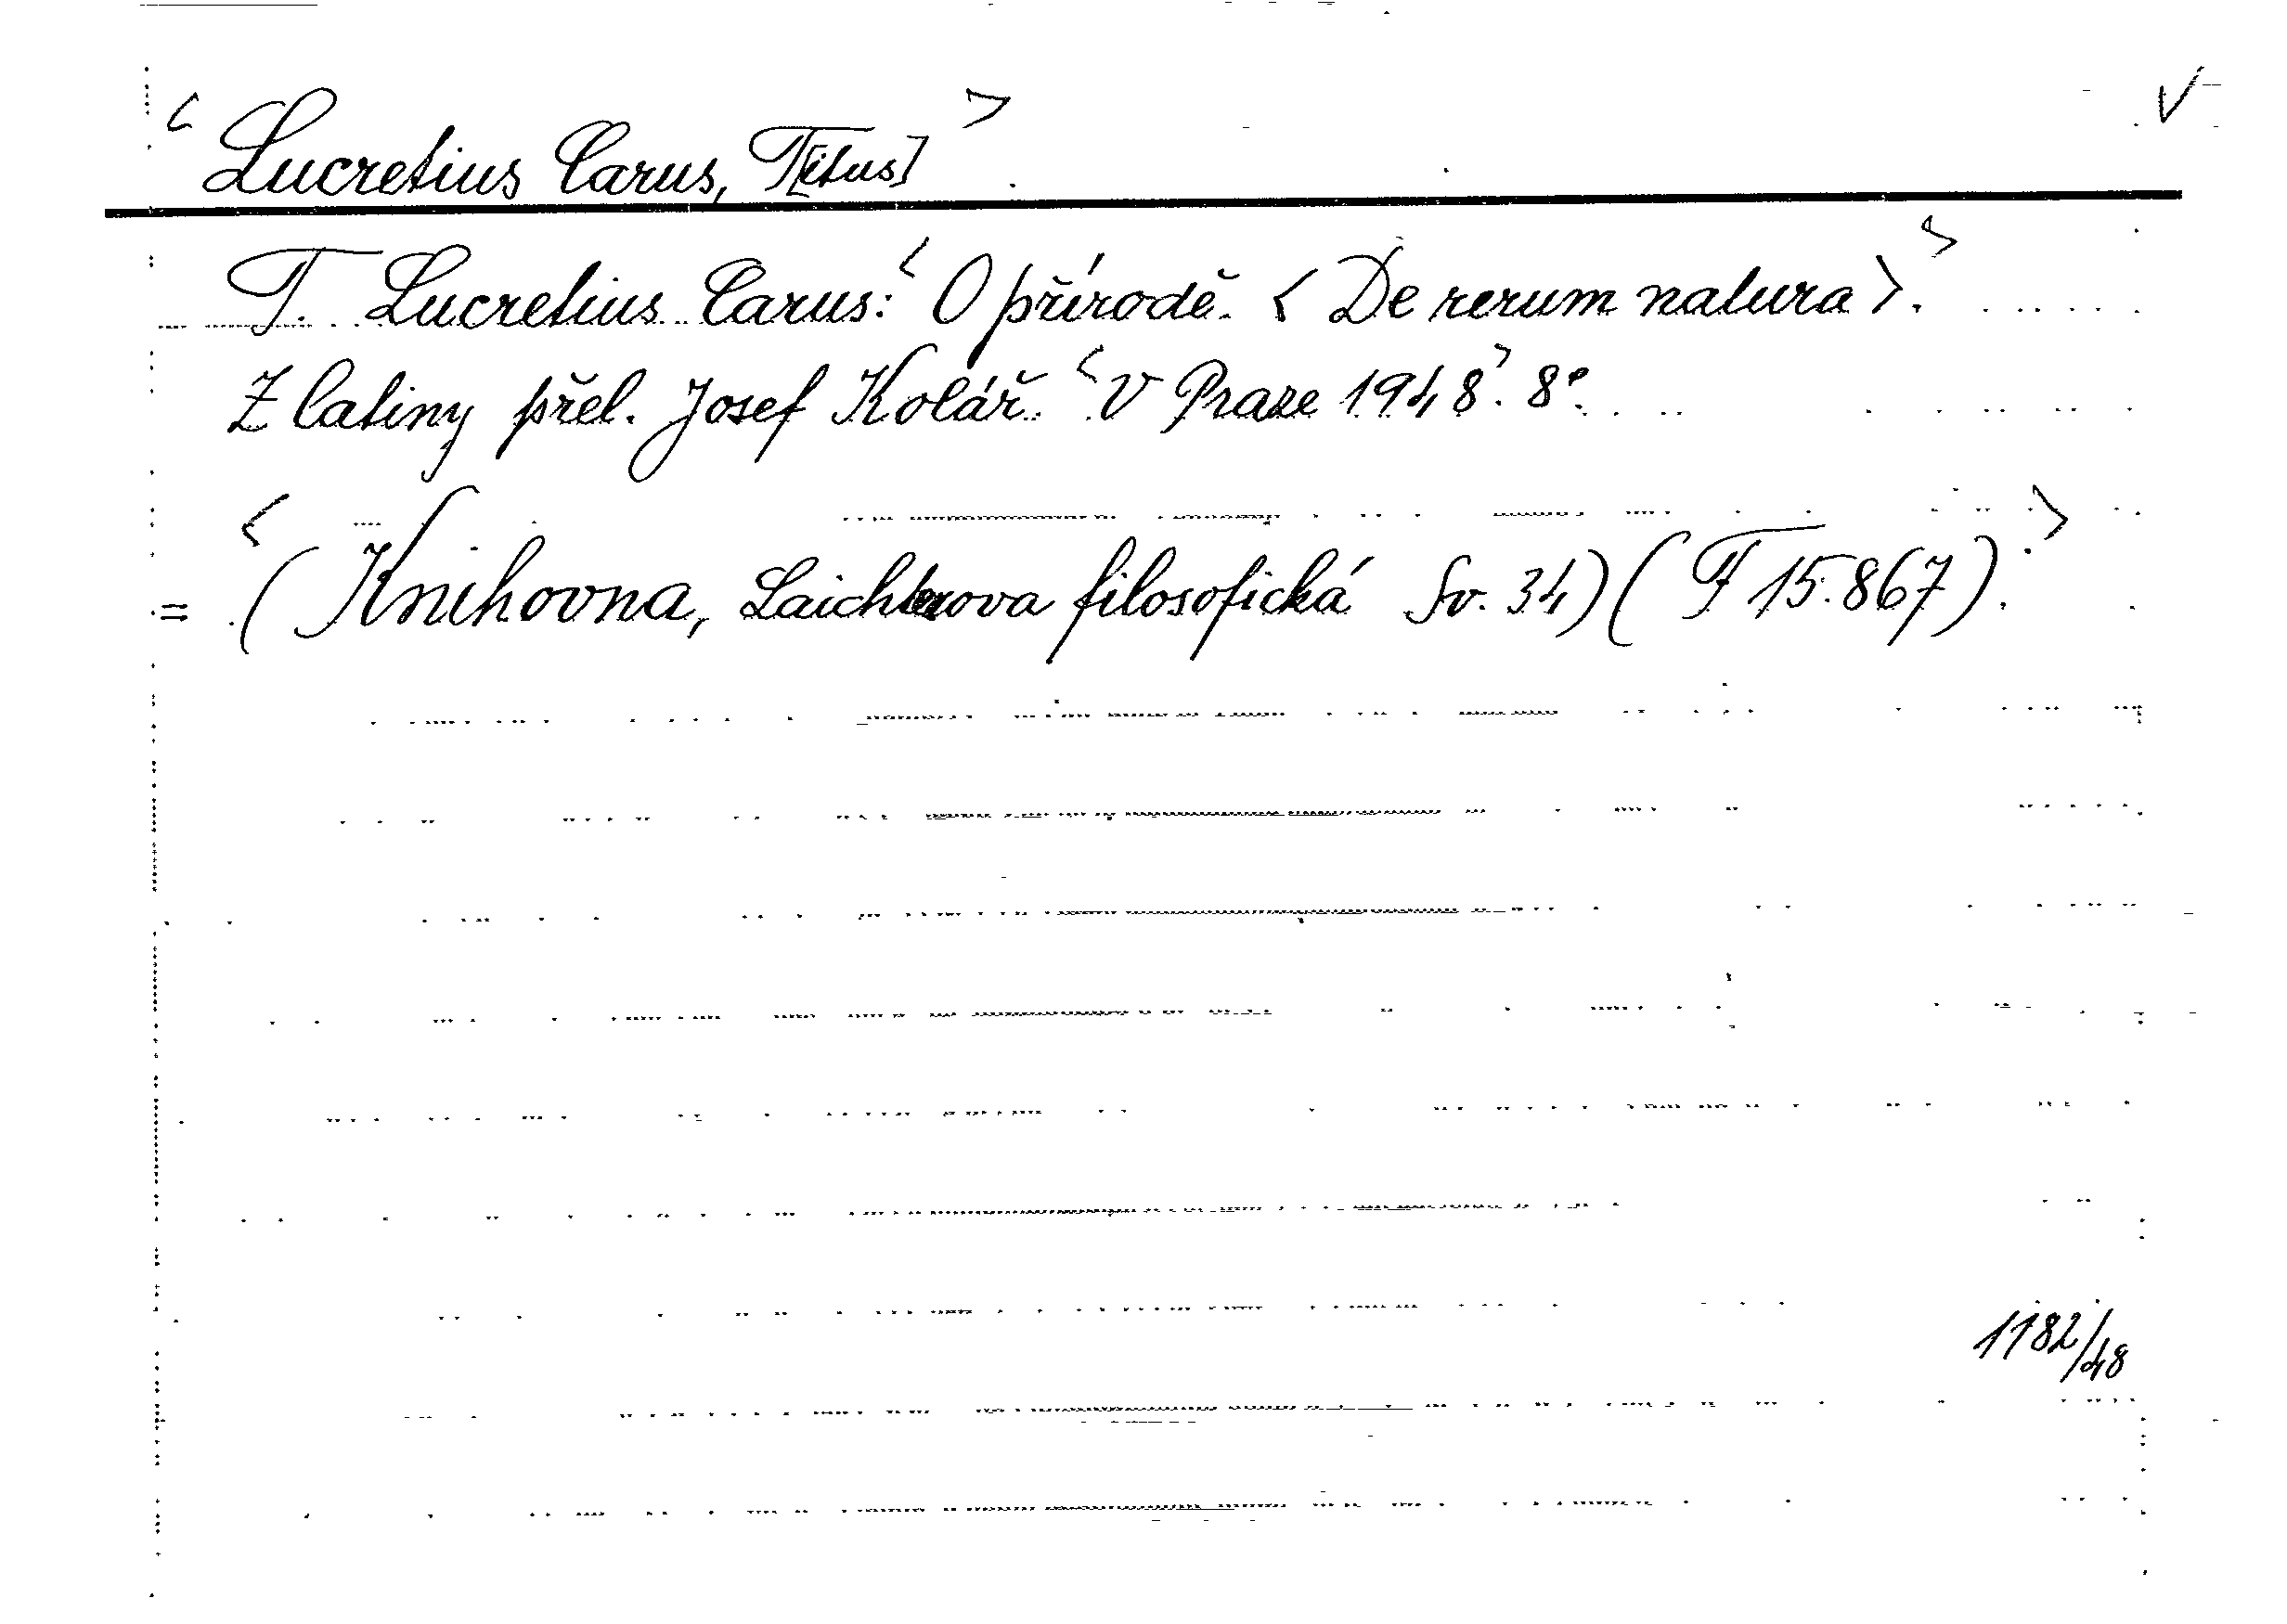 < Lucretius Carus, T[itus] > √
T. Lucretius Carus: < O přírodě. < De rerum natura >. >
Z latiny přel. Josef Kolář. < V Praze 1948 >. 8°.
< = (Knihovna, Laichterova filosofická Sv. 34) (F 15.867). >
1182/48